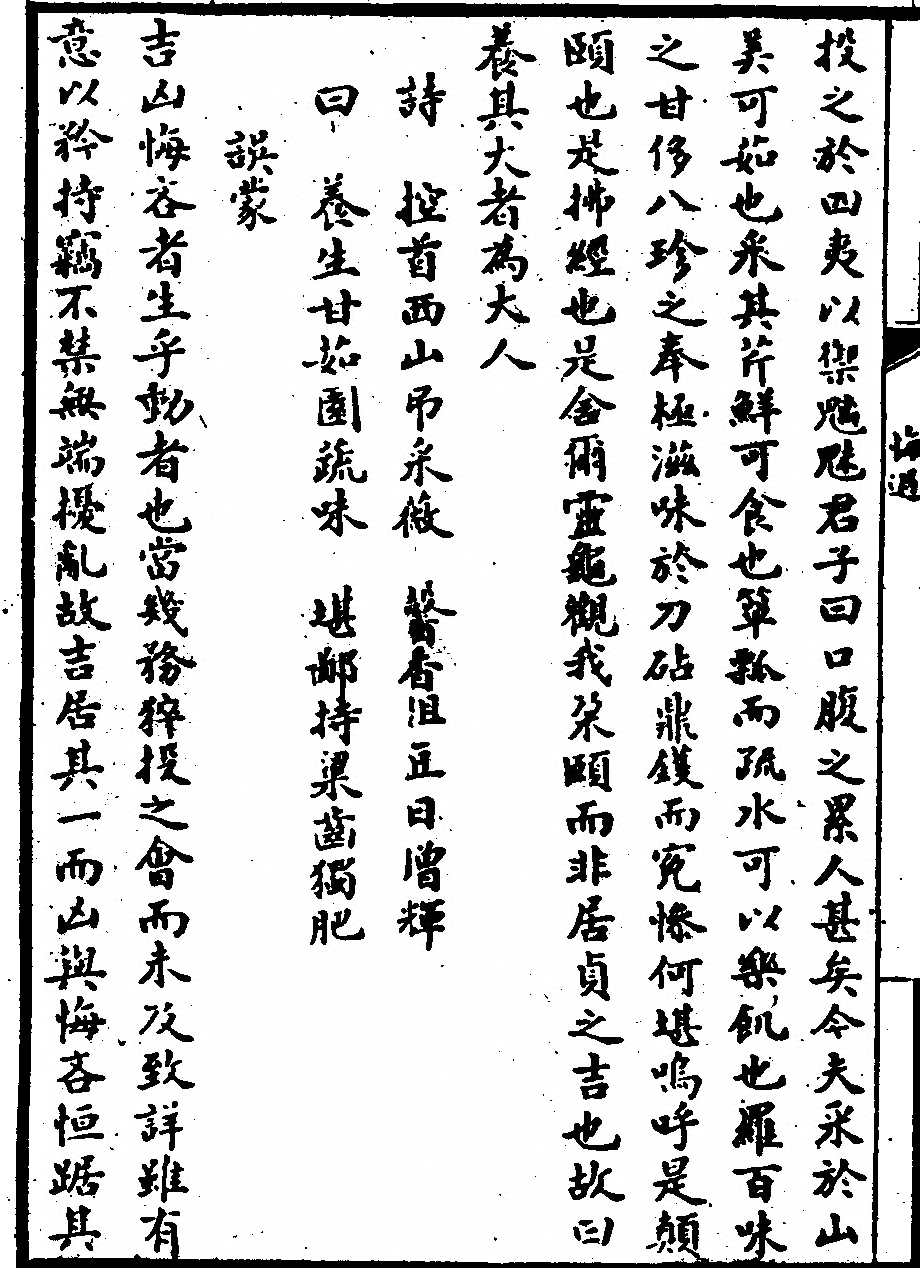 投之於四夷以禦魑魅君子曰口腹之累人甚矣今夫采於山
美可茹也采其芹鮮可食也簞瓢而疏水可以樂飢也羅百味
之甘侈八珍之奉極滋味於刀砧鼎鑊而冤慘何堪嗚呼是顛
頤也是拂經也是舍爾靈龜觀我朶頤而非居貞之吉也故曰
養其大者為大人
詩 控首西山吊采薇 馨香沮豆日增輝
曰 養生甘茹園蔬味 堪鄙持粱齒獨肥
誤蒙
吉凶悔吝者生乎動者也當幾務猝投之會而未及致詳雖有
意以矜持竊不禁無端擾亂故吉居其一而凶與悔吝恒踞其
悔過